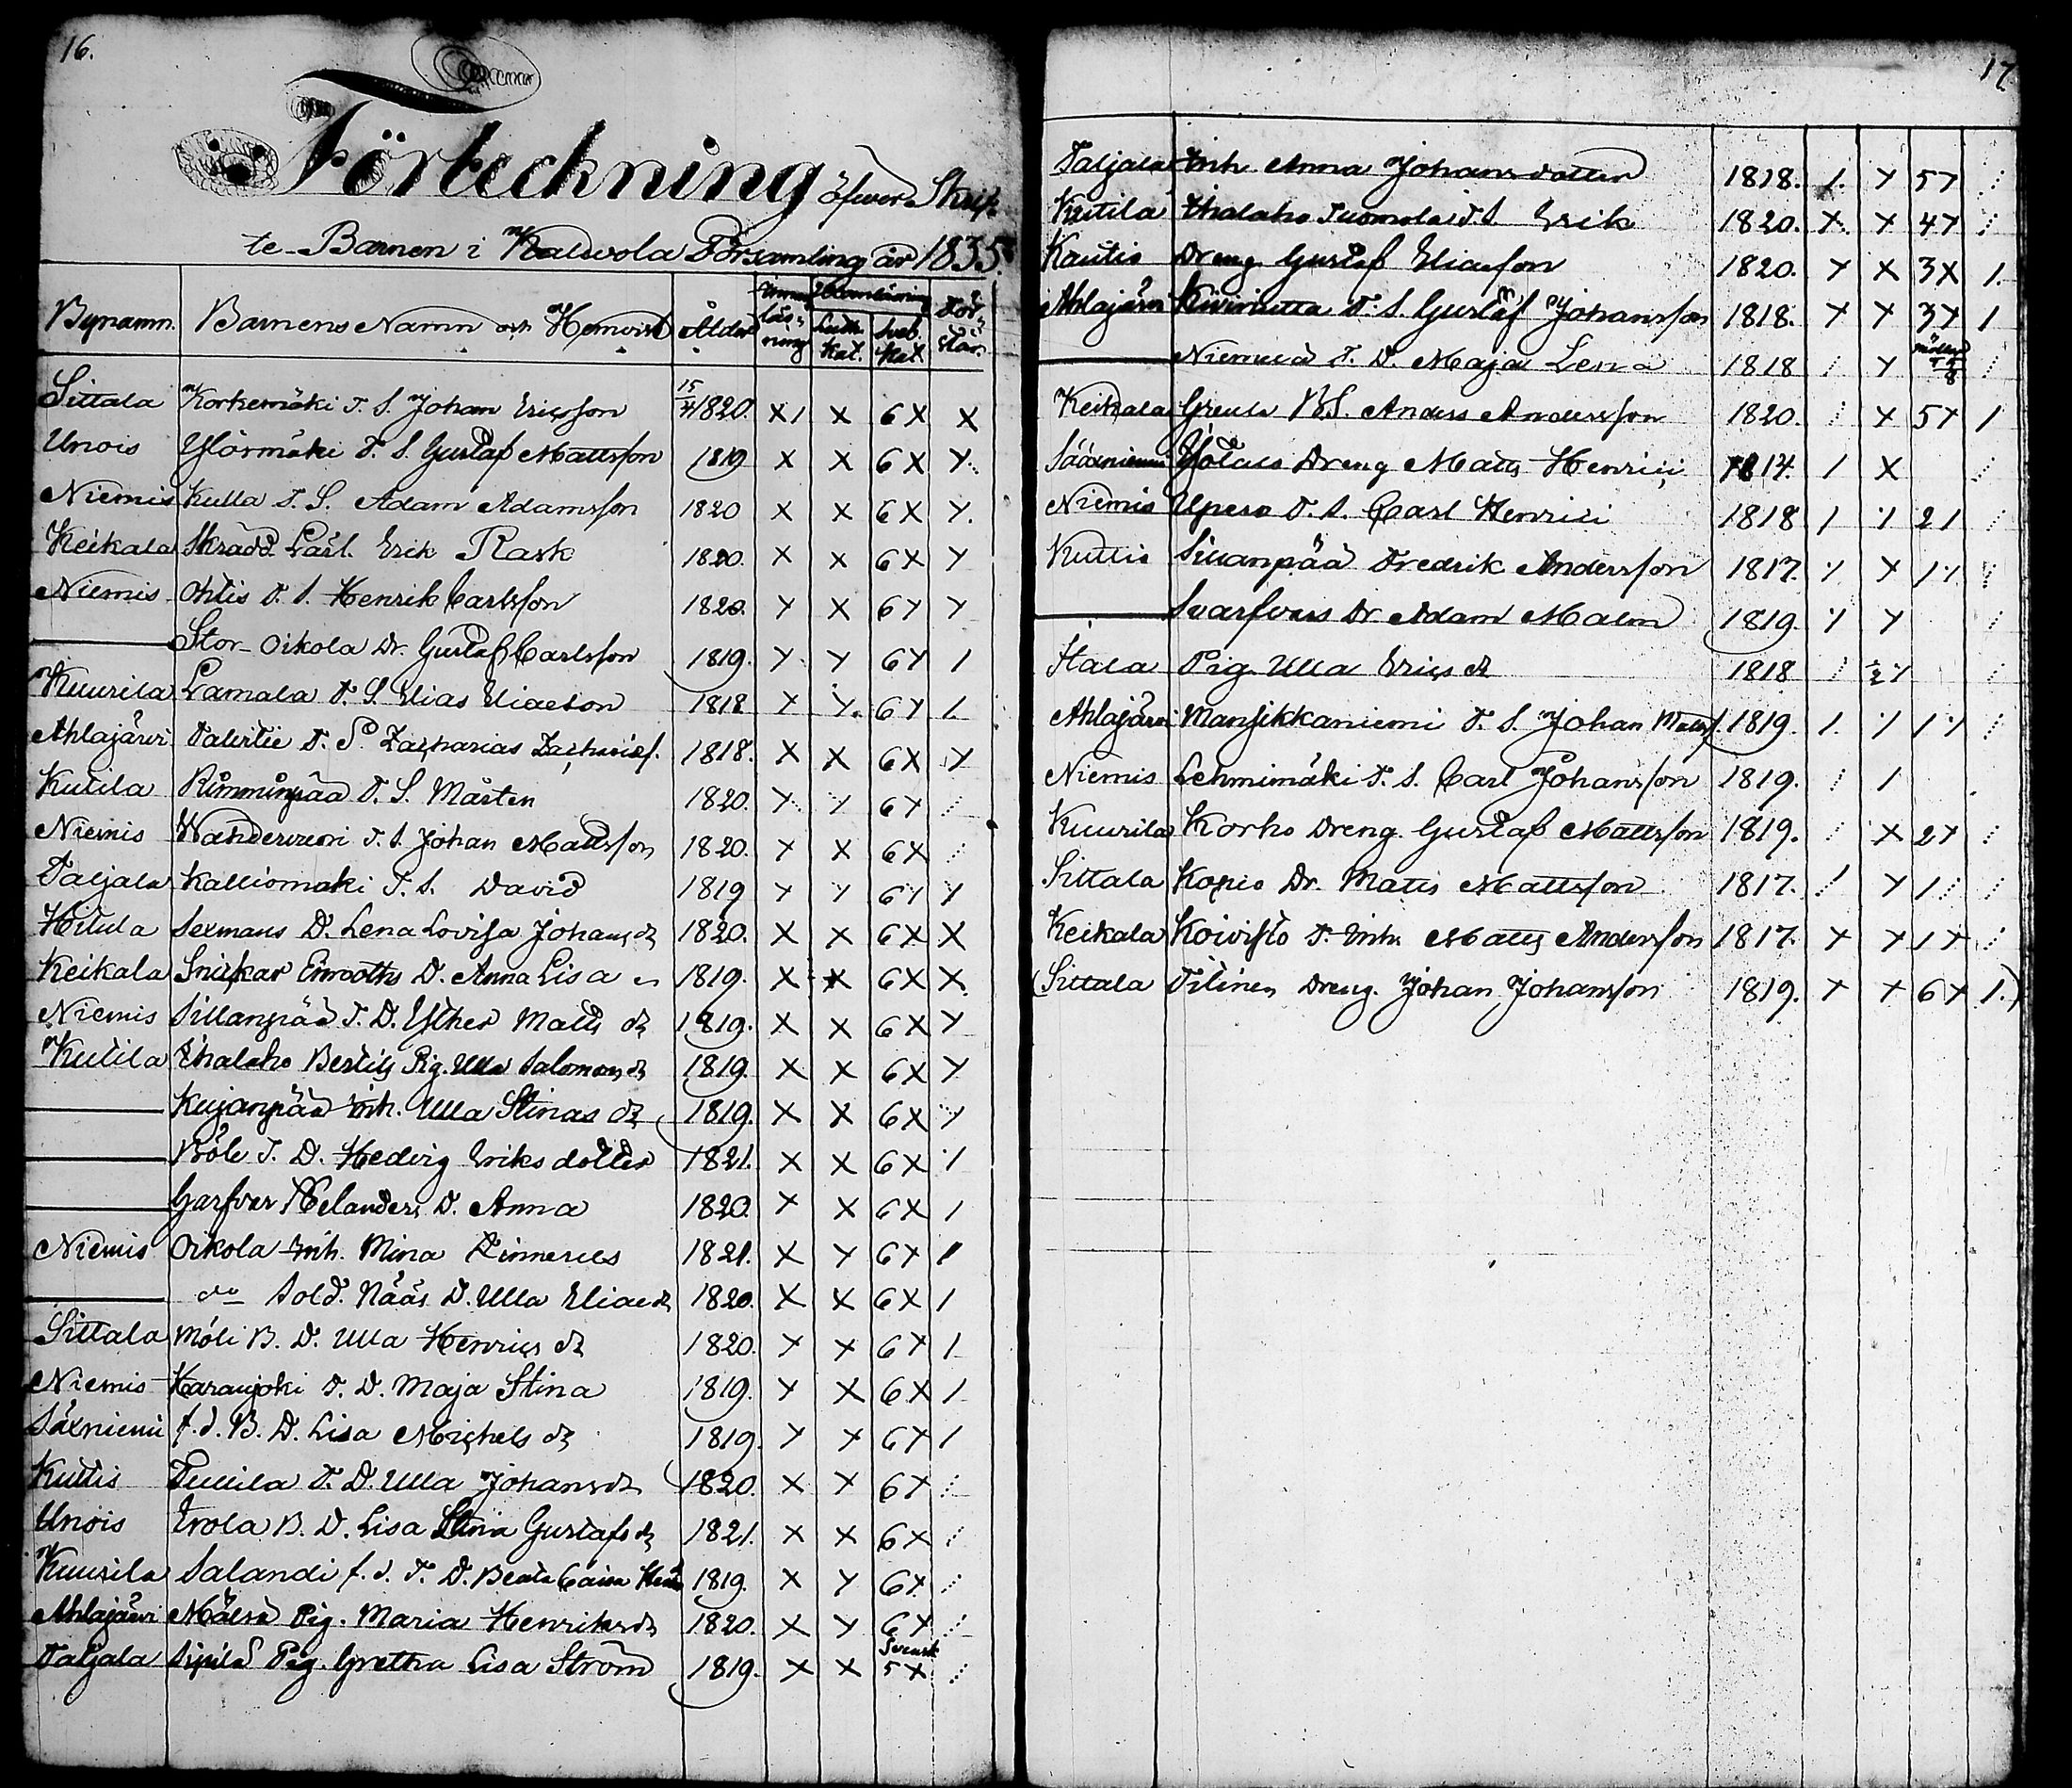 16.
Förteckning öfwer Skrif-
te-Barnen i Kalwola Församling år 1835.
Bynamn. Barnens Namn och Hemvist Ålder Innanläsning Utanläsning Förstånd
Luth. Kat. Sveb. Kat.
Sittala Korkemäki T. S. Johan Ericsson 15/7 1820. X1 X 6X X
Unois Ylörmäki T. S. Gustaf Mattsson 1819 X X 6X Y
Niemis Kulla T. S. Adam Adamsson 1820 X X 6X Y.
Keikala Skrädd. Lärl. Erik Rask 1820. X X 6X Y
Niemis Ohtis T. S. Henrik Carlsson 1820. Y X 6Y Y
— Stor-Oikola Dr. Gustaf Carlsson 1819. Y Y 6Y 1
Kuurila Lamala T. S. Elias Eliaeson 1818 Y Y. 6Y 1.
Ahlajärvi T. S. Zacharias Zachariaes. 1818. X X 6X Y
Kutila Rimminpää T. S. Mårten 1820. Y Y 6Y
Niemis T. S. Johan Mattsson 1820. Y X 6X
Taljala Kalliomaki T. S. David 1819 Y Y 6Y Y
Hitula Sexmans D. Lena Lovisa Johans dr 1820. X X 6X X
Keikala Snickar Enrooths D. Anna Lisa 1819. X X 6X X
Niemis Sillanpää T. D. Esther Matts dr 1819. X X 6X Y
Kutila Ihalaho Bertils Pig. Ulla Salomons dr 1819. X X 6X Y
— Kujanpää Inh. Ulla Stinas dr 1819. X X 6X Y
— Böle T. D. Hedvig Eriks dotter 1821. X X 6X 1
— Garfvar Helanders D. Anna 1820. Y X 6X 1
Niemis Oikola Inh. Mina 1821. X Y 6Y 1
— do Sold. Nääs D. Ulla Eliae dr 1820. X X 6X 1
Sittala Möli B. D. Ulla Henrics dr 1820. Y Y 6Y 1
Niemis Haranjoki T. D. Maja Stina 1819. Y X 6X 1
Säxniemi f. d. B. D. Lisa Michels dr 1819. Y Y 6Y 1
Kuttis T. D. Ulla Johans dr 1820. X Y 6Y
Unois Erola B. D. Lisa Stina Gustafs dr 1821. X X 6X
Kuurila Salandi f. d. T. D. Beata Caisa 1819. X Y 6Y
Ahlajärvi Mälsä Pig. Maria Henriks dr 1820. X Y 6Y
Taljala Sipilä Pig. Gretha Lisa Ström 1819. X X Svensk 5X
17
Taljala Inh. Anna Johansdotter 1818. 1. Y 5Y
Kutila Ihalaho Tuomola T. S. Erik 1820. X. X 4Y
Kautis Dreng Gustaf Eliasson 1820. Y X 3X 1.
Ahlajärvi Kiviniitta T. S. Gustaf Johansson 1818. Y Y 3Y 1
— T. D. Maja Lena 1818 1 Y
Keikala BS. Anders Andersson 1820. X 5Y 1
Sääxniemi Dreng Matts Henrici 1814. 1 X
Niemis T. S. Carl Henrici 1818 1 Y 21
Kuttis Sillanpää Fredrik Andersson 1817. Y Y 1Y
— Svarfvars Dr. Adam Malm 1819. Y Y
Itala Pig. Ulla Erics dr 1818
Ahlajärvi Mansikkaniemi T. S. Johan Matss. 1819. 1. Y 1Y
Niemis Lehmimäki T. S. Carl Johansson 1819. 1
Kuurila Korho Dreng. Gustaf Mattsson 1819. X 2Y
Sittala Kopio Dr. Matts Mattsson 1817. 1 Y 1
Keikala Koivisto T. Inh. Matts Andersson 1817. Y Y 1Y
(Sittala Tilinen Dreng. Johan Johansson 1819. Y Y 6Y 1.)